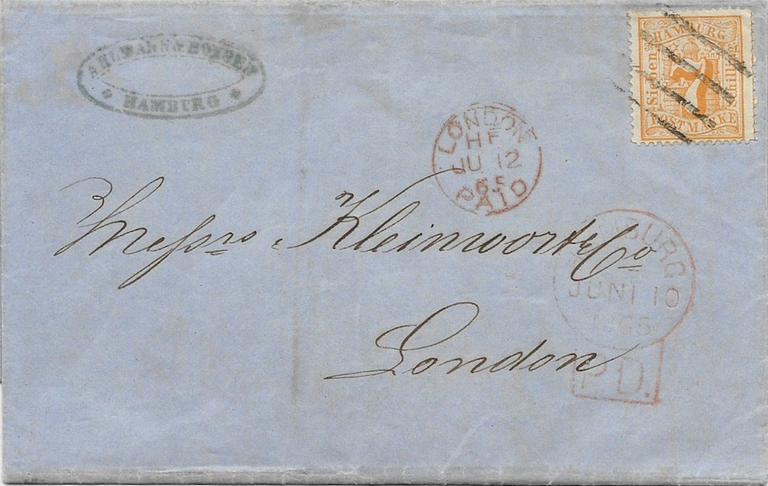 AHLMANN & BOYSEN
HAMBURG
HAMBURG
Sieben
7
Schilling
POSTMARKE
LONDON
HF
JU 12
65
PAID
Messrs Kleinwort & Co
London
HAMBURG
JUNI 10
1865
P.D.